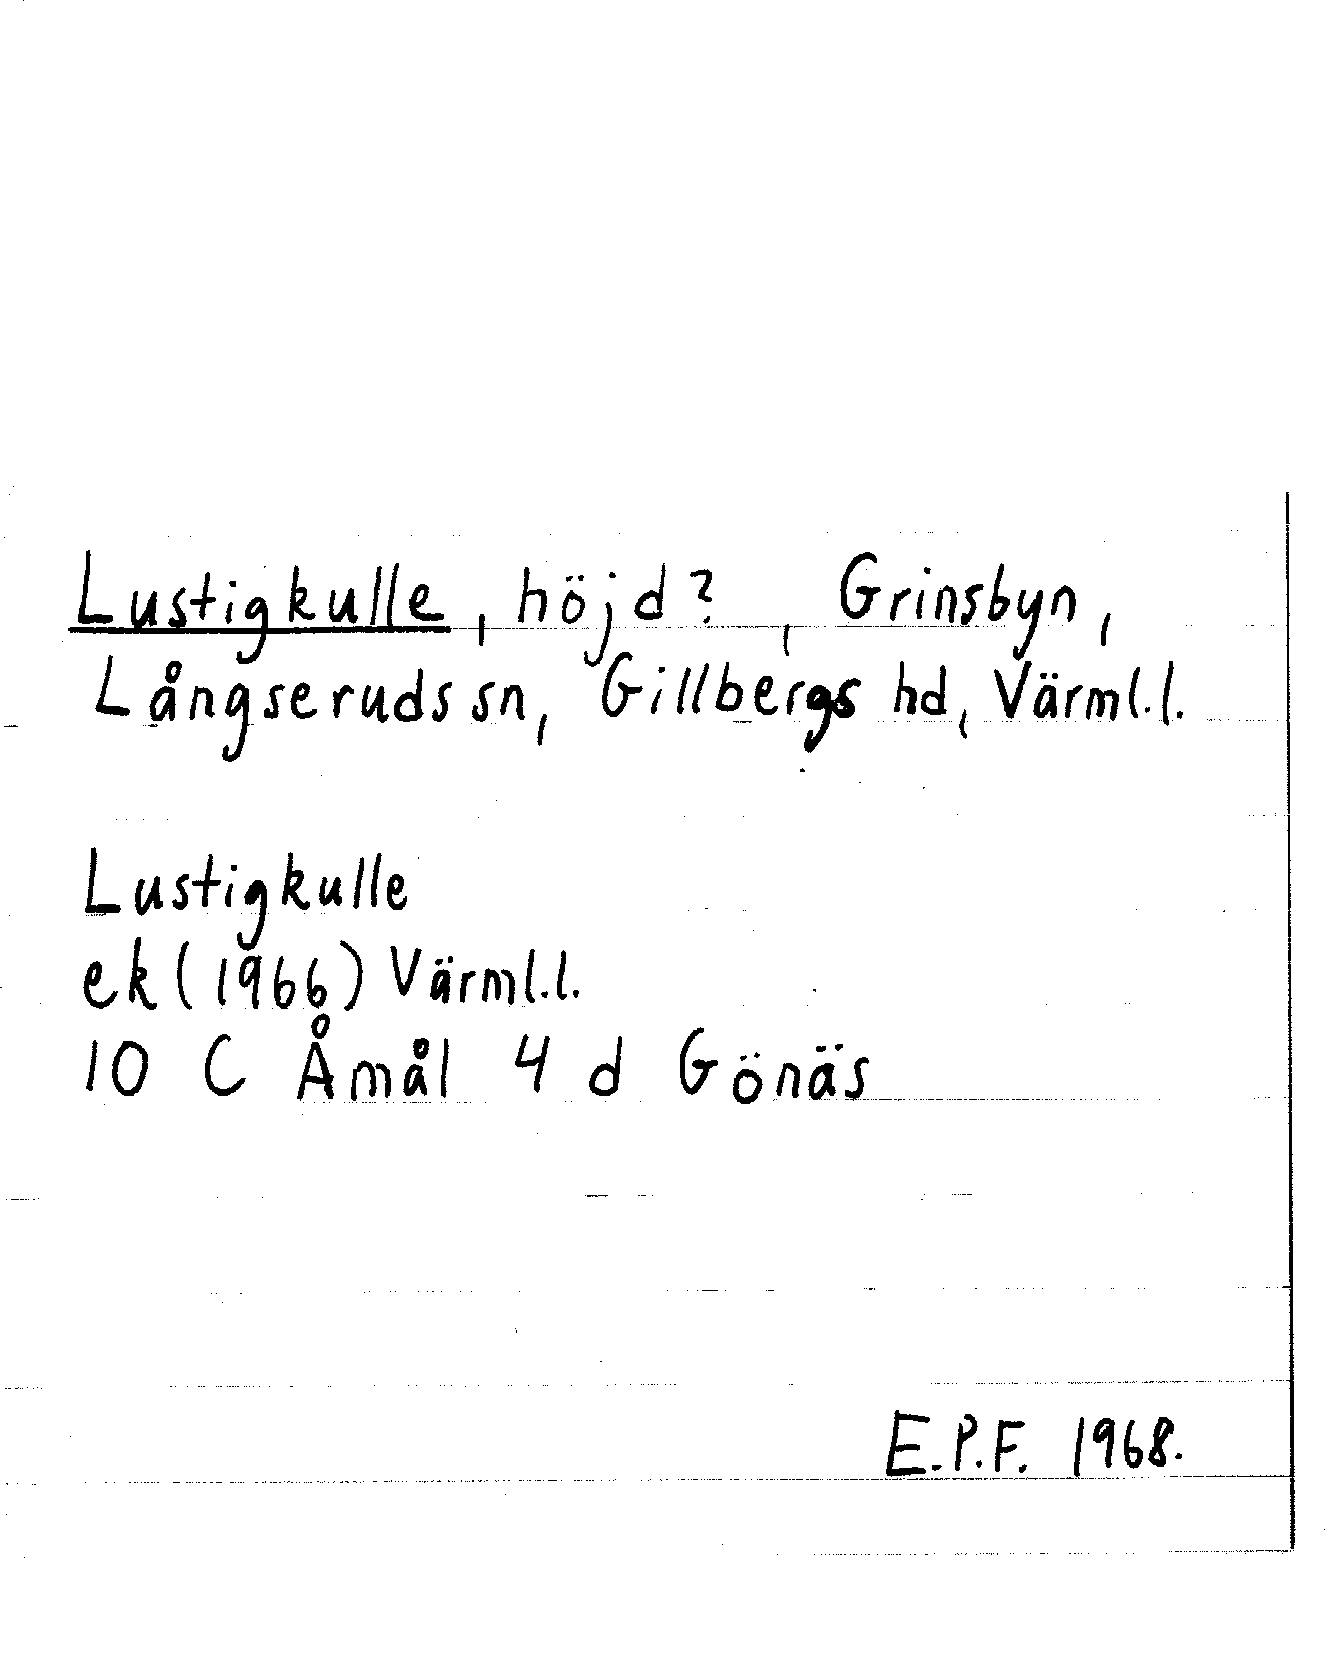 Lustigkulle, höjd?, Grinsbyn,
Långseruds sn, Gillbergs hd, Värml.l.
Lustigkulle
ek (1966) Värml.l.
10 C Åmål 4 d Gönäs
E.P.F. 1968.